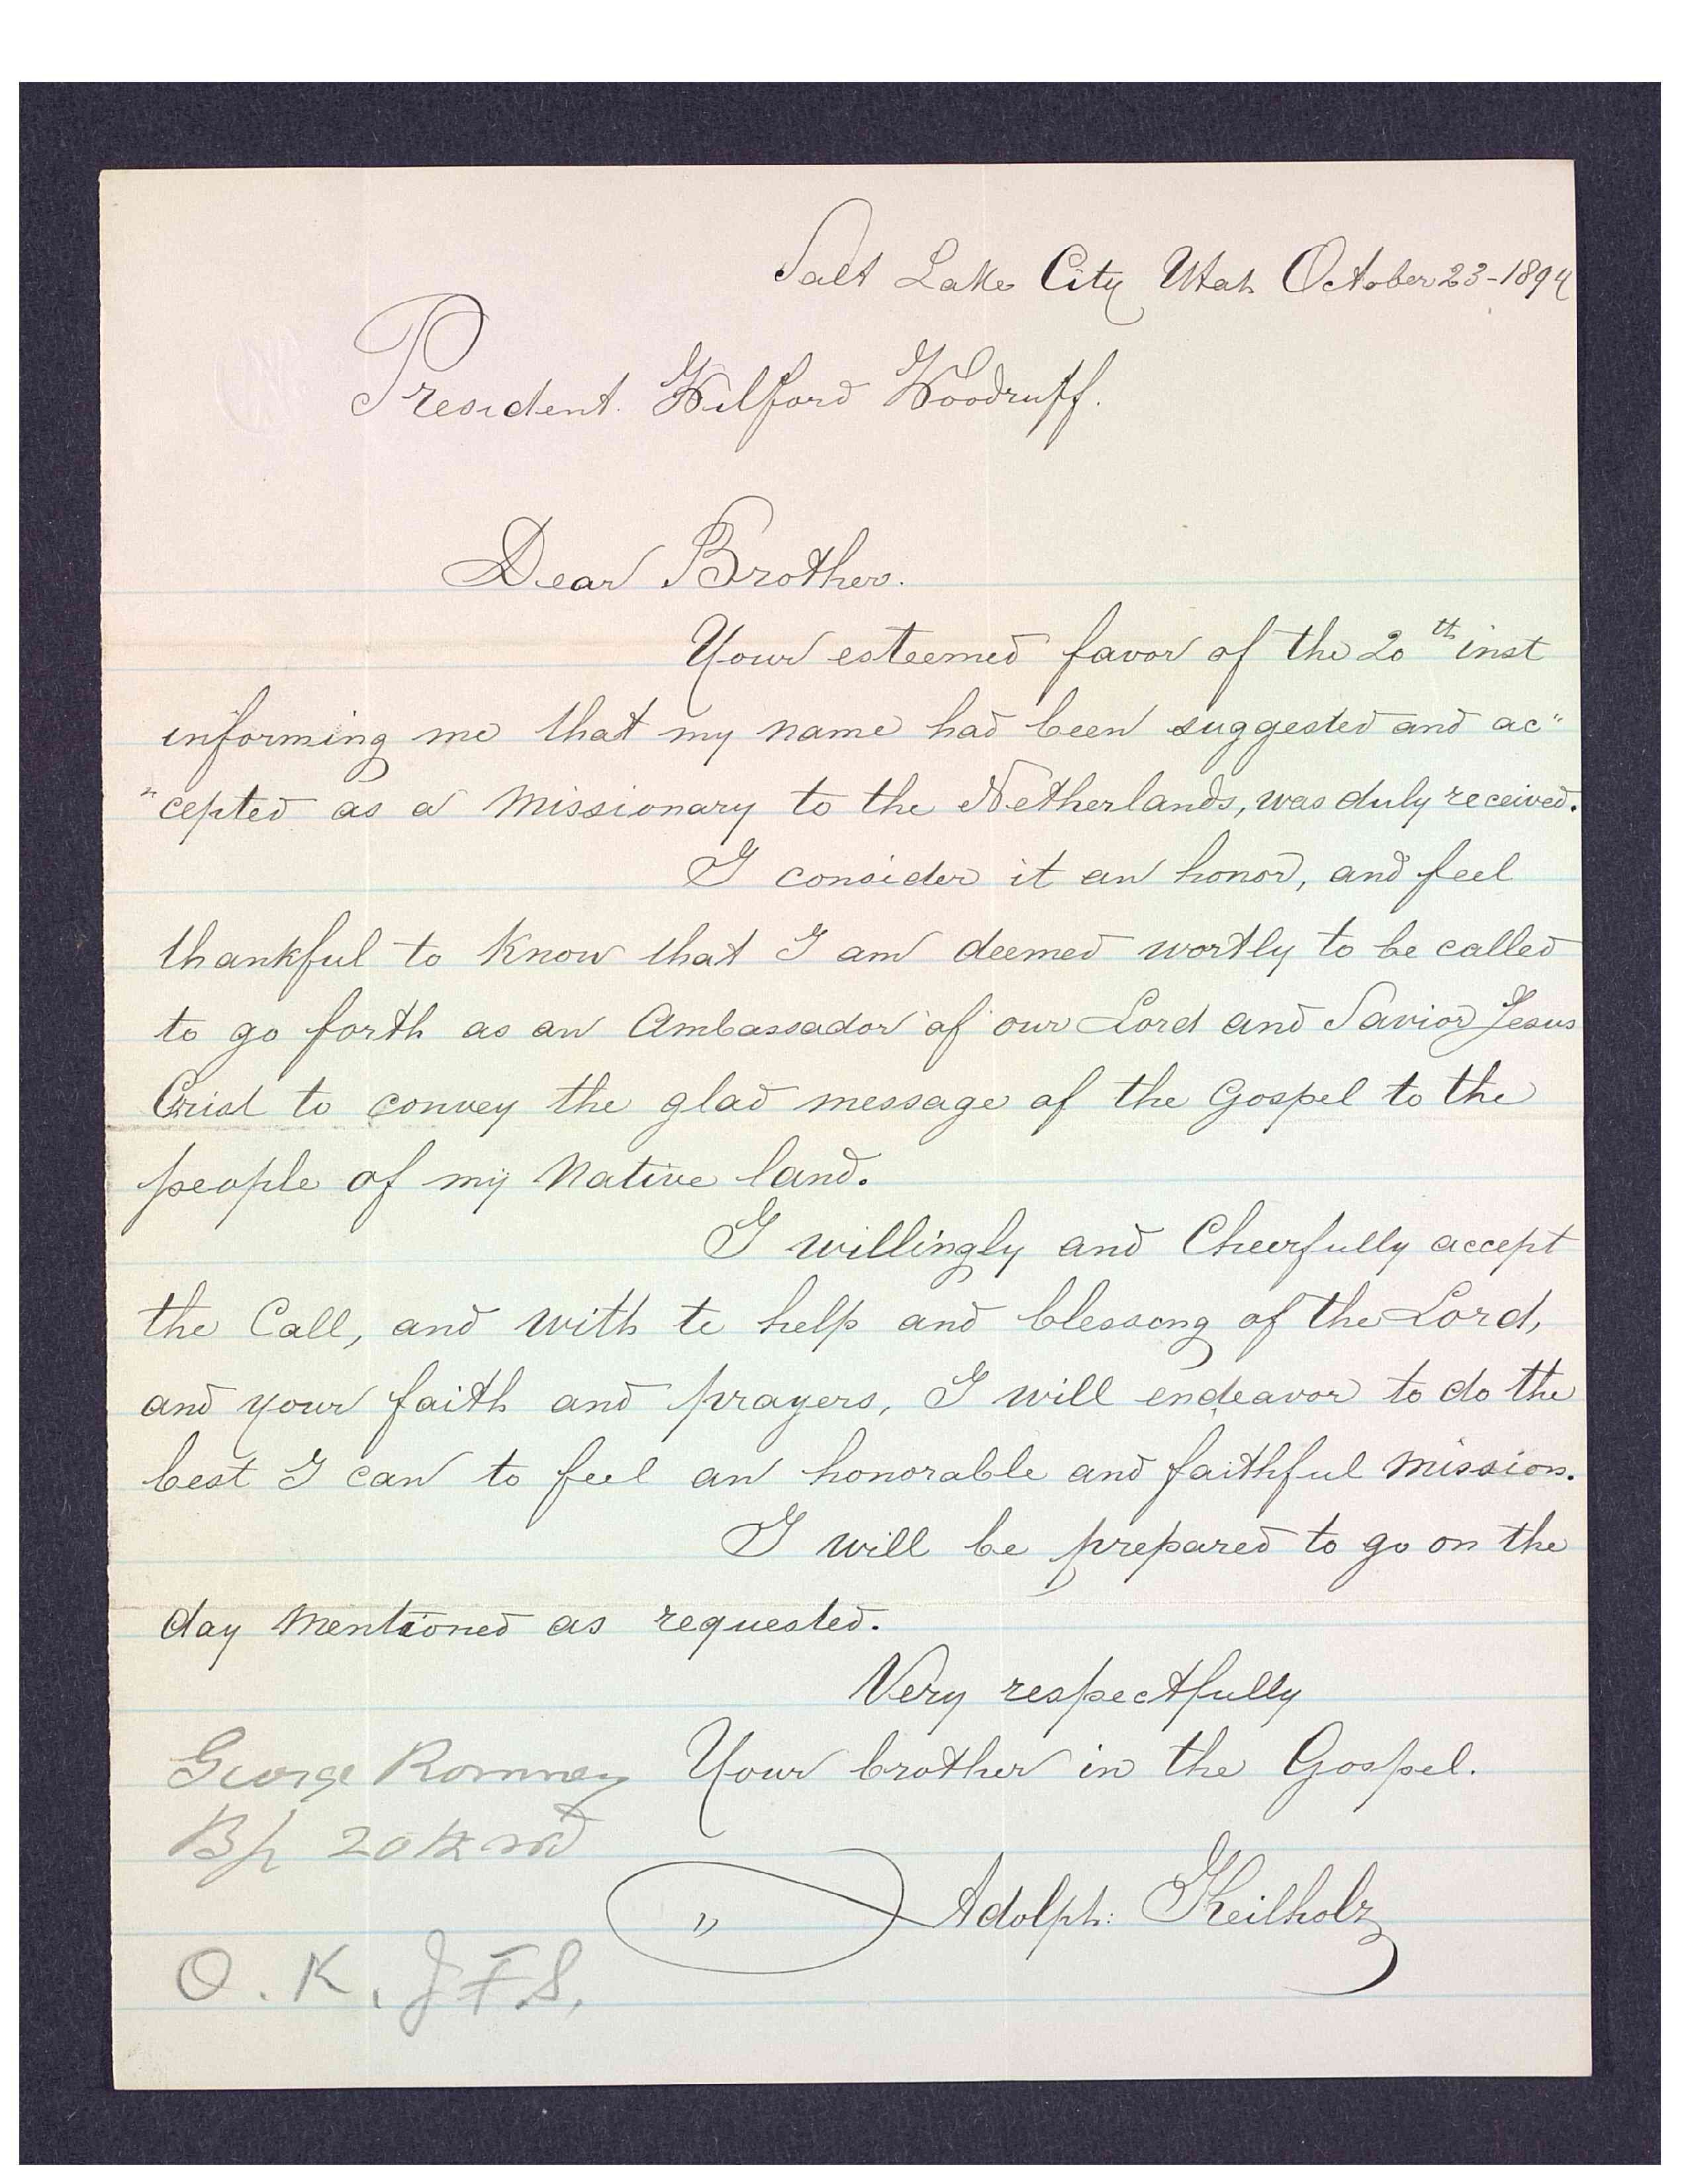 Salt Lake City Utah October 23-1894
President. Wilford Woodruff.
Dear Brother.
Your esteemed favor of the 20th inst
informing me that my name had been suggested and ac"
"cepted as a Missionary to the Netherlands, was duly received.
I consider it an honor, and feel
thankful to Know that I am deemed wortly to be called
to go forth as an Ambassador of our Lord and Savior Jesus
Crist to convey the glad message of the Gospel to the
people of my Native land.
I willingly and Cheerfully accept
the Call, and with te help and blessong of the Lord,
and your faith and prayers, I will endeavor to do the
best I can to feel an honorable and faithful Mission.
I will be prepared to go on the
day Mentioned as requested.
Very respectfully
Your brother in the Gospel.
Adolph: Keilholz
George Romney
Bp 20th wd
O. K. J F S.